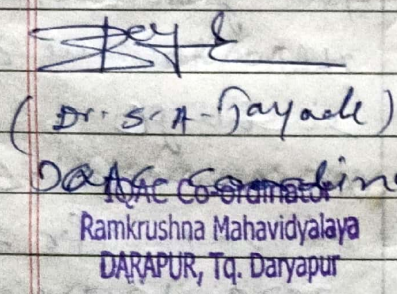 (Dr. S. A. Tayade)
IQAC Co-ordinator
Ramkrushna Mahavidyalaya
DARAPUR, Tq. Daryapur